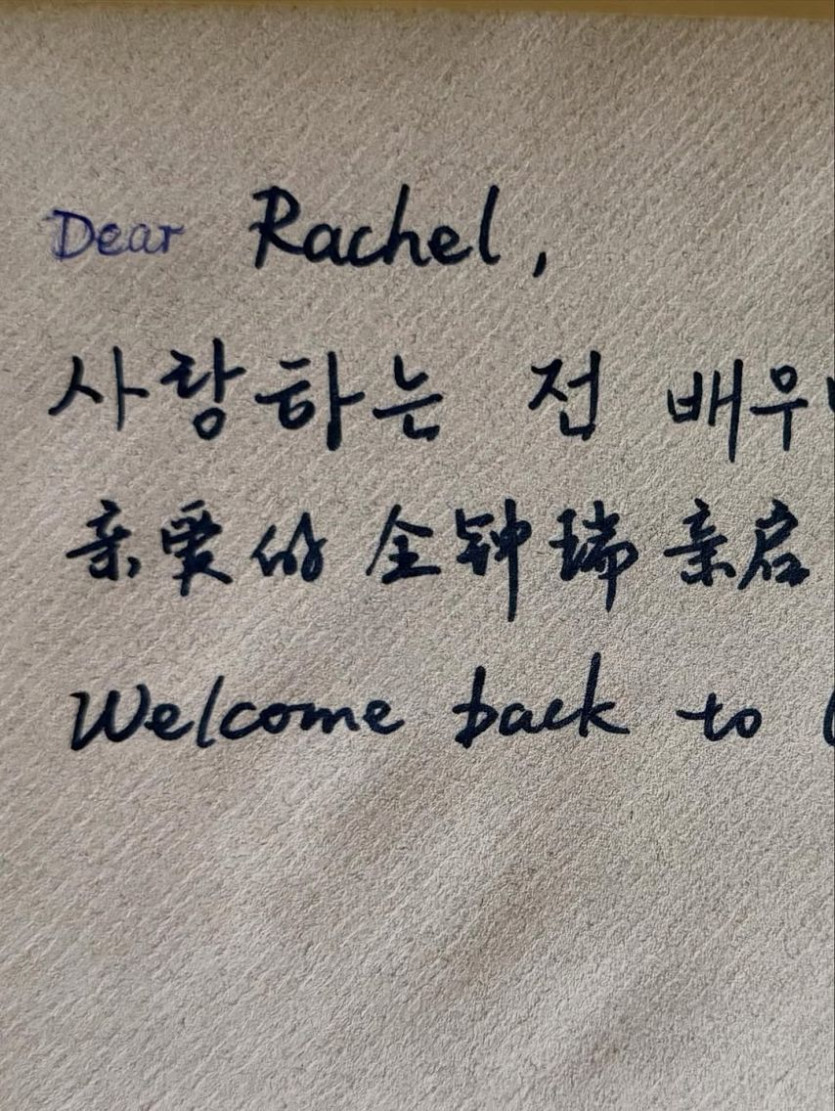 Dear Rachel,
사랑하는 전 배우
亲爱的 全钟瑞 亲启
Welcome back to